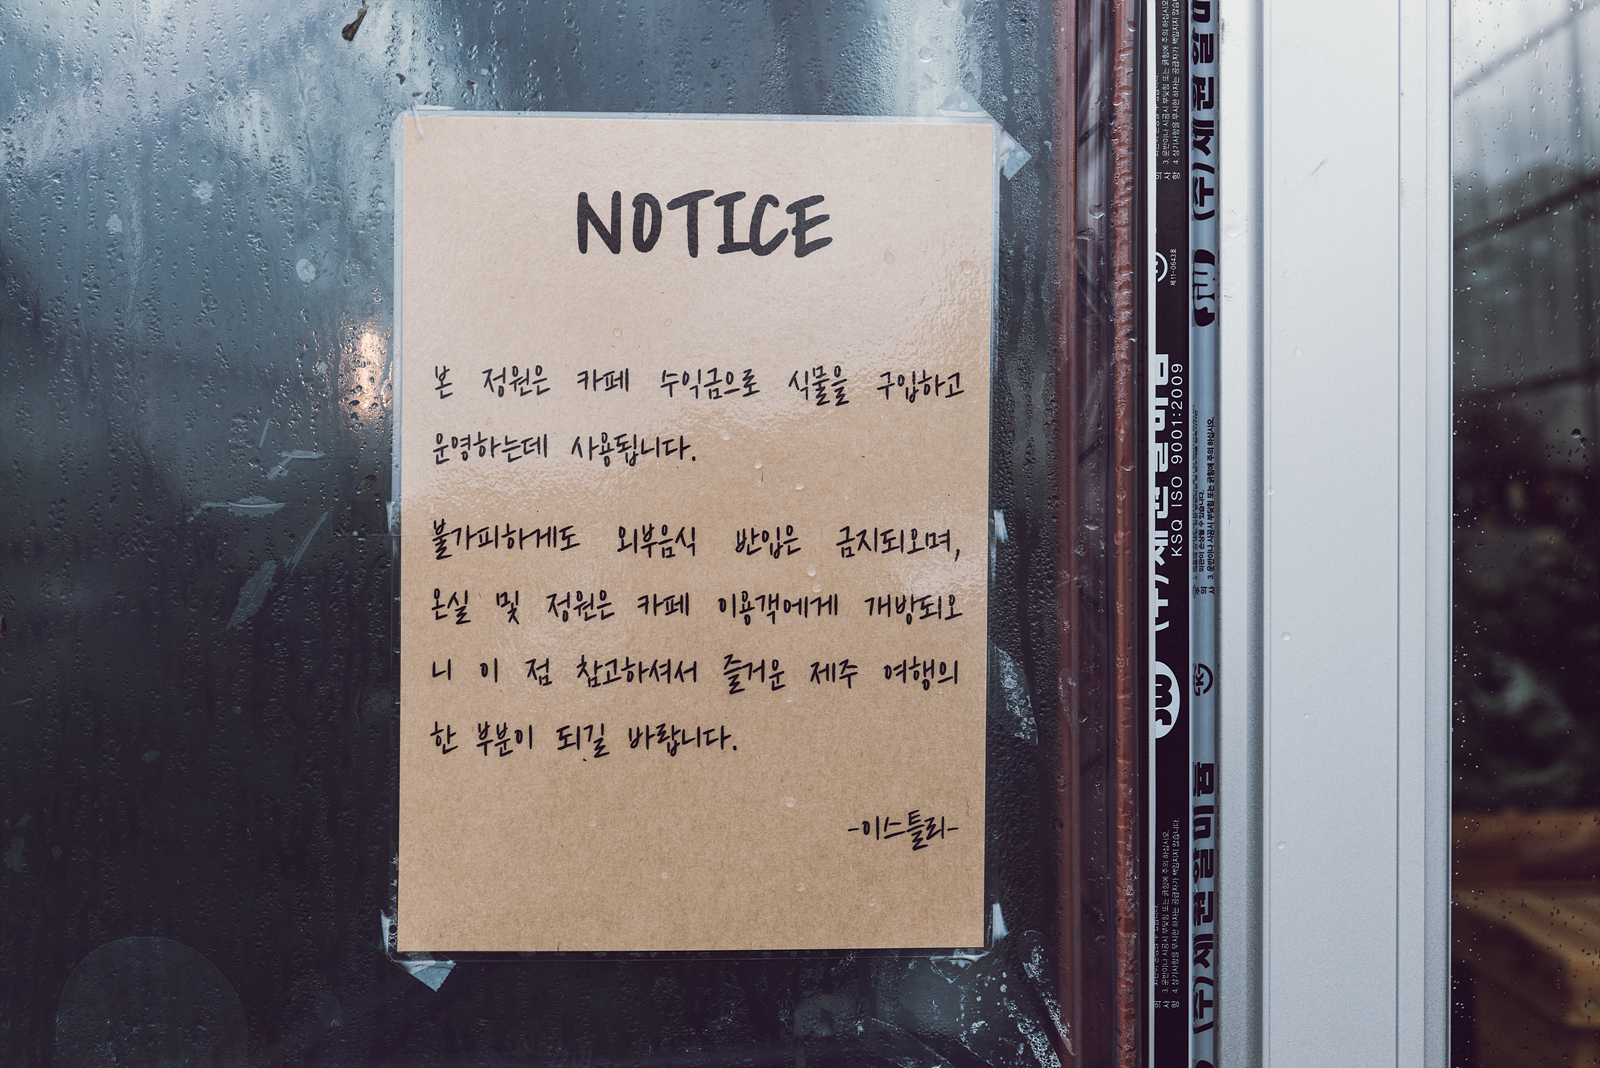 NOTICE
본 정원은 카페 수익금으로 식물을 구입하고
운영하는데 사용됩니다.
불가피하게도 외부음식 반입은 금지되오며,
온실 및 정원은 카페 이용객에게 개방되오
니 이 점 참고하셔서 즐거운 제주 여행의
한 부분이 되길 바랍니다.
-이스틀리-
(주)세원알미늄
KSQ ISO 9001:2009
(주)세원알미늄